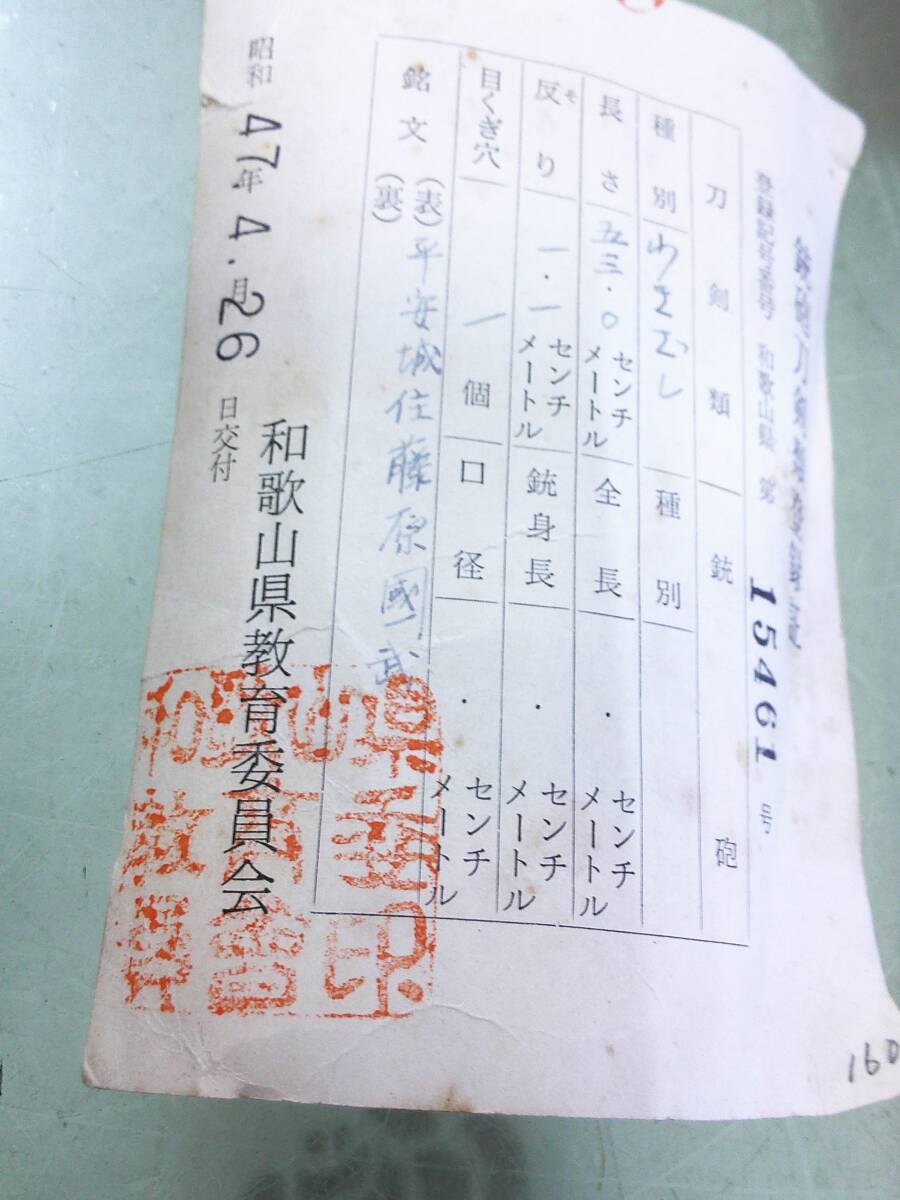 銃砲刀剣類登録証
登録記号番号 和歌山県 第 15461 号
刀剣類 銃砲
種別 わきざし 種別
長さ 五三.〇 センチメートル 全長 . センチメートル
反り そ 一.一 センチメートル 銃身長 . センチメートル
目くぎ穴 一 個 口径 . センチメートル
銘文 (表) 平安城住藤原國武
(裏)
昭和 47年 4.月 26 日交付
和歌山県教育委員会
160